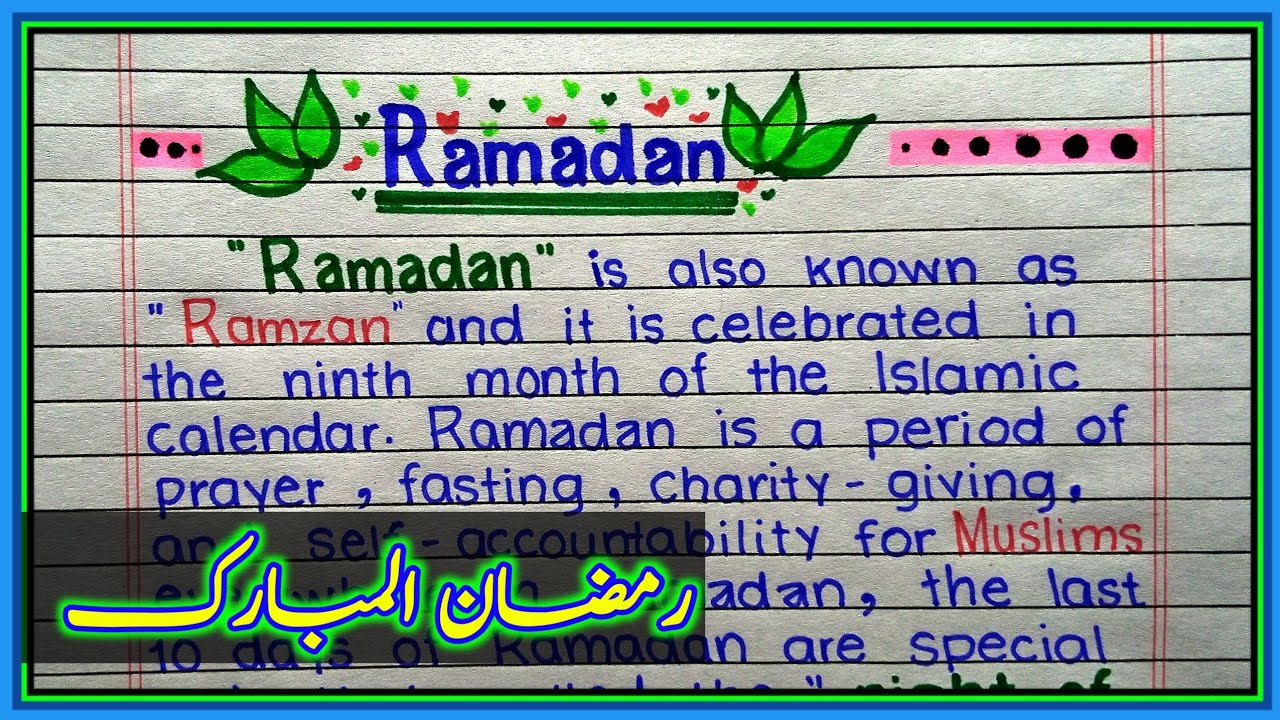 Ramadan
"Ramadan" is also known as
"Ramzan" and it is celebrated in
the ninth month of the Islamic
calendar. Ramadan is a period of
prayer, fasting, charity-giving,
and self-accountability for Muslims
adan, the last
رمضان المبارک
10 days of Ramadan are special
the "night of